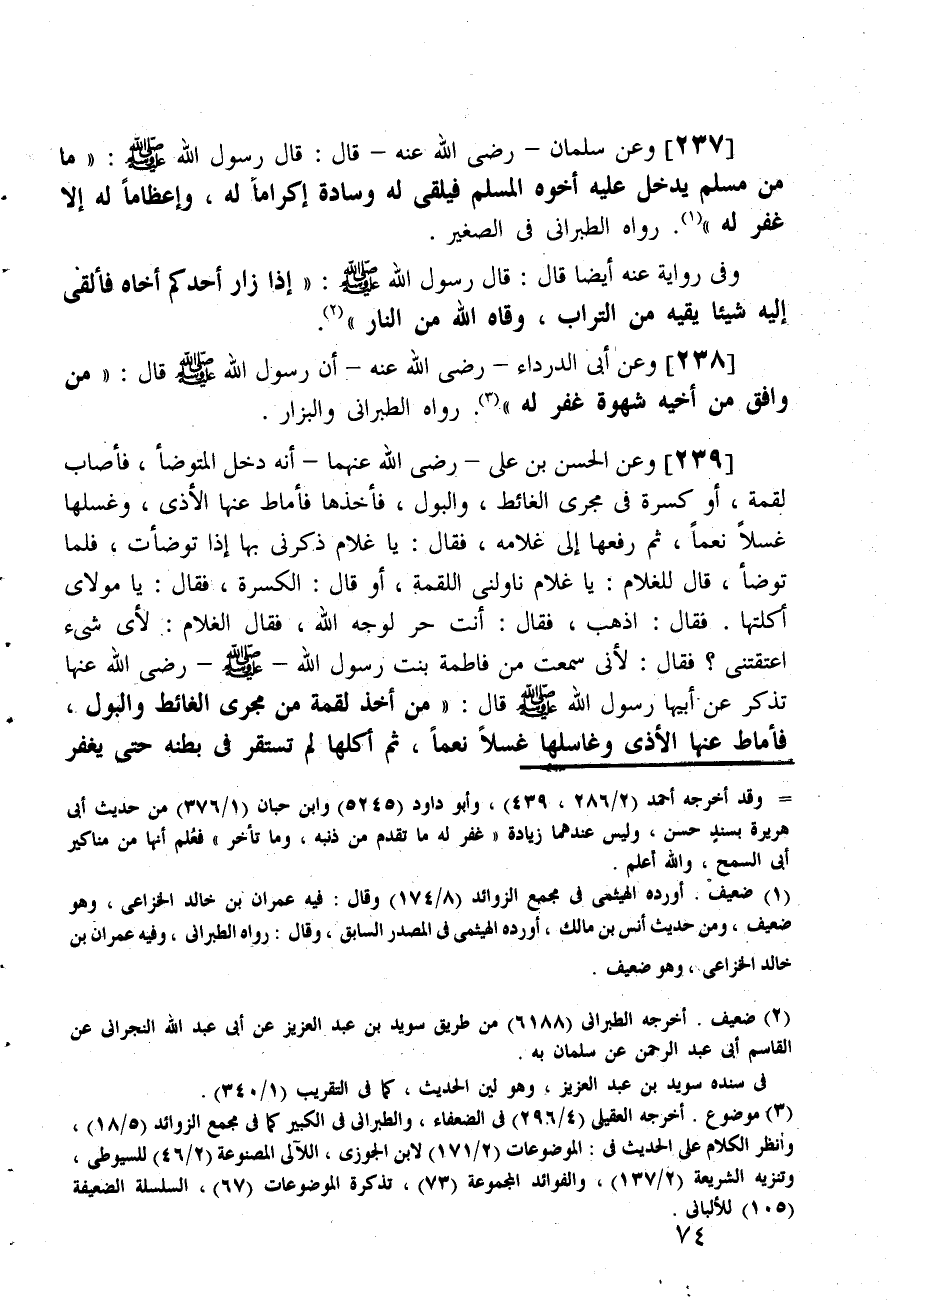 [٢٣٧] وعن سلمان – رضى الله عنه – قال : قال رسول الله ﷺ : « ما
من مسلم يدخل عليه أخوه المسلم فيلقى له وسادة إكراماً له ، وإعظاماً له إلا
غفر له »(١). رواه الطبرانى فى الصغير .
وفى رواية عنه أيضا قال : قال رسول الله ﷺ : « إذا زار أحدكم أخاه فألقى
إليه شيئا يقيه من التراب ، وقاه الله من النار »(٢).
[٢٣٨] وعن أبى الدرداء – رضى الله عنه – أن رسول الله ﷺ قال : « من
وافق من أخيه شهوة غفر له »(٣). رواه الطبرانى والبزار .
[٢٣٩] وعن الحسن بن على – رضى الله عنهما – أنه دخل المتوضأ ، فأصاب
لقمة ، أو كسرة فى مجرى الغائط ، والبول ، فأخذها فأماط عنها الأذى ، وغسلها
غسلاً نعماً ، ثم رفعها إلى غلامه ، فقال : يا غلام ذكرنى بها إذا توضأت ، فلما
توضأ ، قال للغلام : يا غلام ناولنى اللقمة ، أو قال : الكسرة ، فقال : يا مولاى
أكلتها . فقال : اذهب ، فقال : أنت حر لوجه الله ، فقال الغلام : لأى شىء
اعتقتنى ؟ فقال : لأنى سمعت من فاطمة بنت رسول الله – ﷺ – رضى الله عنها
تذكر عن أبيها رسول الله ﷺ قال : « من أخذ لقمة من مجرى الغائط والبول ،
فأماط عنها الأذى وغاسلها غسلاً نعماً ، ثم أكلها لم تستقر فى بطنه حتى يغفر
= وقد أخرجه أحمد (٢٨٦/٢ ، ٤٣٩) ، وأبو داود (٥٢٤٥) وابن حبان (٣٧٦/١) من حديث أبى
هريرة بسندٍ حسن ، وليس عندهما زيادة « غفر له ما تقدم من ذنبه ، وما تأخر » فعُلم أنها من مناكير
أبى السمح ، والله أعلم .
(١) ضعيف . أورده الهيثمى فى مجمع الزوائد (١٧٤/٨) وقال : فيه عمران بن خالد الخزاعى ، وهو
ضعيف ، ومن حديث أنس بن مالك ، أورده الهيثمى فى المصدر السابق ، وقال : رواه الطبرانى ، وفيه عمران بن
خالد الخزاعى ، وهو ضعيف .
(٢) ضعيف . أخرجه الطبرانى (٦١٨٨) من طريق سويد بن عبد العزيز عن أبى عبد الله النجرانى عن
القاسم أبى عبد الرحمن عن سلمان به .
فى سنده سويد بن عبد العزيز ، وهو لين الحديث ، كما فى التقريب (٣٤٠/١) .
(٣) موضوع . أخرجه العقيلى (٢٩٦/٤) فى الضعفاء ، والطبرانى فى الكبير كما فى مجمع الزوائد (١٨/٥) ،
وأنظر الكلام على الحديث فى : الموضوعات (١٧١/٢) لابن الجوزى ، اللآلى المصنوعة (٤٦/٢) للسيوطى ،
وتنزيه الشريعة (١٣٧/٢) ، والفوائد المجموعة (٧٣) ، تذكرة الموضوعات (٦٧) ، السلسلة الضعيفة
(١٠٥) للألبانى .
٧٤